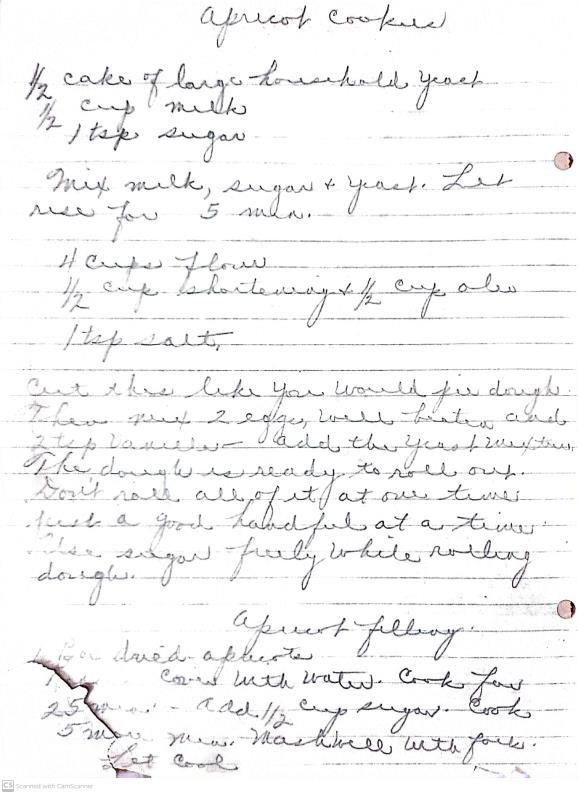 Apricot Cookies
1/2 cake of large household yeast
1/2 cup milk
1 tsp sugar
Mix milk, sugar + yeast. Let
rise for 5 min.
4 cups flour
1/2 cup shortening + 1/2 cup oleo
1 tsp salt.
Cut this like you would pie dough.
Then mix 2 eggs, well beaten and
2 tsp vanilla - add the yeast mixture.
The dough is ready to roll out.
Don't roll all of it at one time
just a good handful at a time.
Use sugar freely while rolling
dough.
Apricot filling
dried apricots
Cover with water. Cook for
25 min. - add 1/2 cup sugar. Cook
5 more min. Mash well with fork.
Let cool
CS Scanned with CamScanner